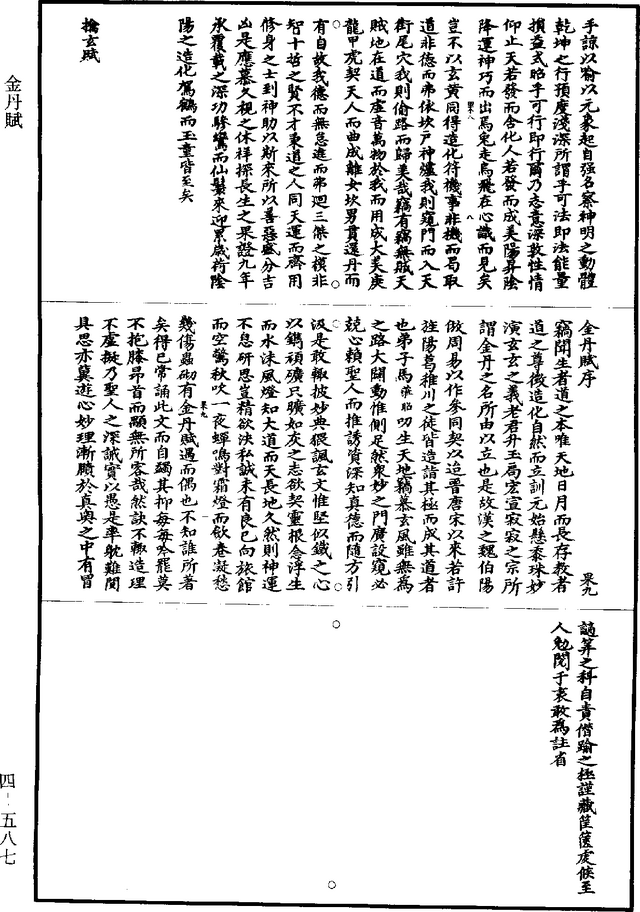 手諒以喻以元象起自强名察神明之動體
乾坤之行預度淺深所謂乎可法即法能量
損益或昭乎可行即行爾乃志意深敦性情
仰止天若發而含化人若發而成美陽昇陰
降運神巧而出焉兔走烏飛在心識而見矣
豈不以玄黃同得造化符機事非機而局取
道非德而弗依坎戸神爐我則窺門而入天
街尾穴我則偷路而歸美哉竊有竊無賊天
賊地在道而虛音萬物於我而用成大美庚
龍甲虎契天人而曲成離女坎男貫還丹而
有自故我德而無怠進而弗迴三傑之模非
智十哲之賢不才秉道之人同天運而齊用
修身之士到神助以斯來所以善惡盛分吉
凶是應慕久視之休祥探長生之果證九年
承覆載之深功驂鸞而仙鬟來迎累歲荷陰
陽之造化駕鶴而玉童皆至矣
擒玄賦
金丹賦序 果九
竊聞生者道之本唯天地日月而長存教者
道之尊微造化自然而立訓元始懸黍珠妙
演玄玄之義老君升玉局宏宣寂寂之宗所
謂金丹之名所由以立也是故漢之魏伯陽
倣周易以作參同契以迨晉唐宋以來若許
旌陽葛稚川之徒皆造詣其極而成其道者
也弟子馬蒞昭叨生天地竊慕玄風雖無為
之路大闢動惟側足然衆妙之門廣設窺必
兢心賴聖人而推誘資深知真德而隨方引
汲是敢輙披妙典猥諷玄文惟堅似鐵之心
以鐫頑礦只曠如灰之志欲契靈根念浮生
而水沫風燈知大道而天長地久然則神運
不息研思豈精欲決私誠未有良已向旅館
而空驚秋吹一夜蟬鳴對霜燈而欽巷凝愁
幾傷蛩砌有金丹賦遇而偶也不知誰所著
矣得已常誦此文而自蠲其抑每每吟罷莫
不抱膝昂首而顒無所容哉然訣不輙造理
不虛擬乃聖人之深誡實以愚是率躭難閡
具思亦冀遊心妙理漸賾於真奥之中有冒
謫筭之科自責僭踰之極謹藏筐篋庋候至
人勉閱于衷敢為註省
金丹賦
四-五八七